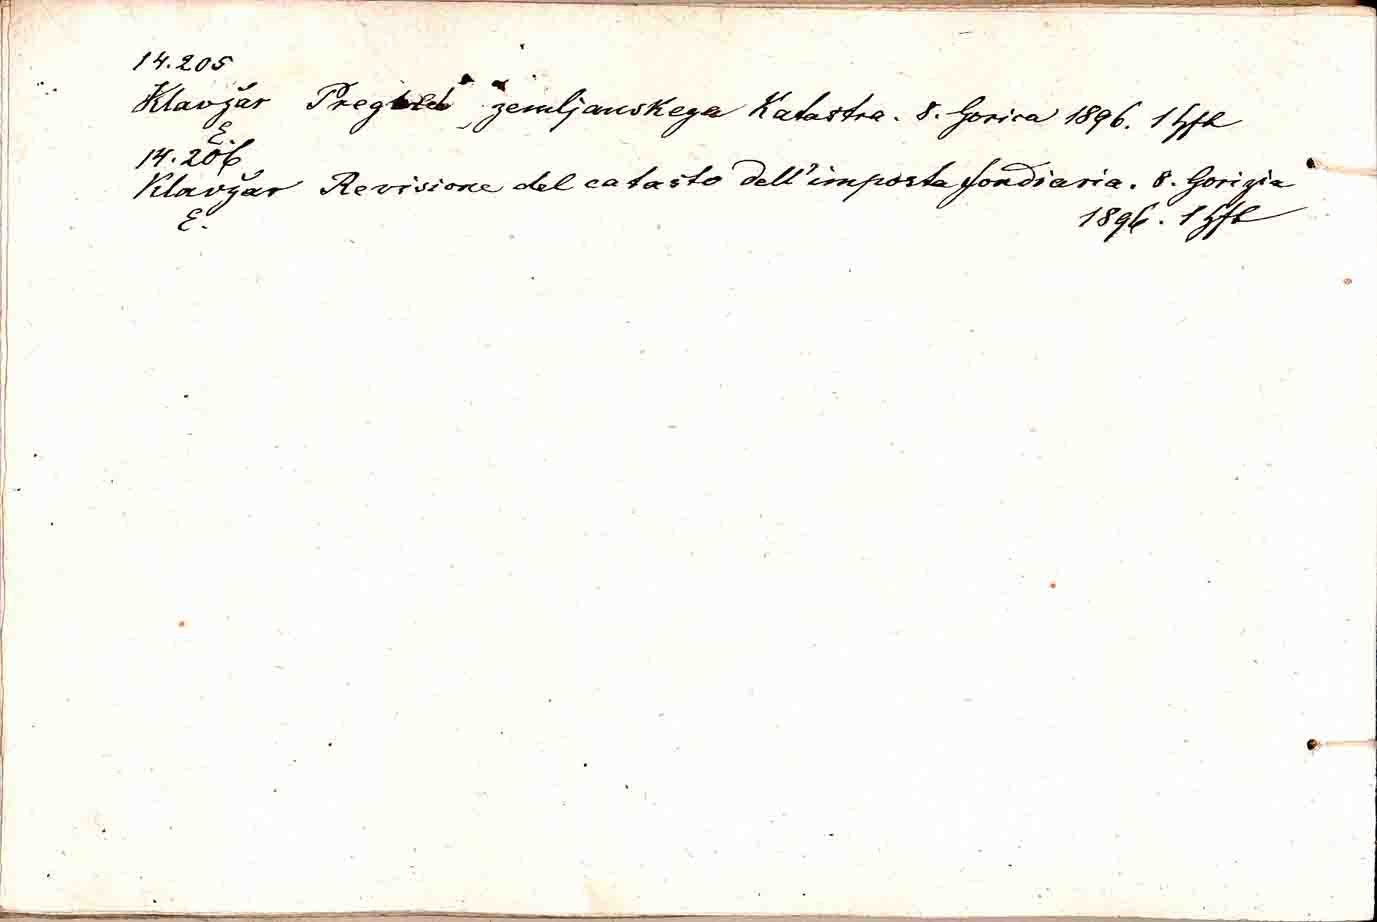 14.205
Klavžar Pregled zemljanskega Katastra. 8. Gorica 1896. 1 Hft
E.
14.206
Klavžar Revisione del catasto dell'imposta fondiaria. 8. Gorizia
E. 1896. 1 Hft